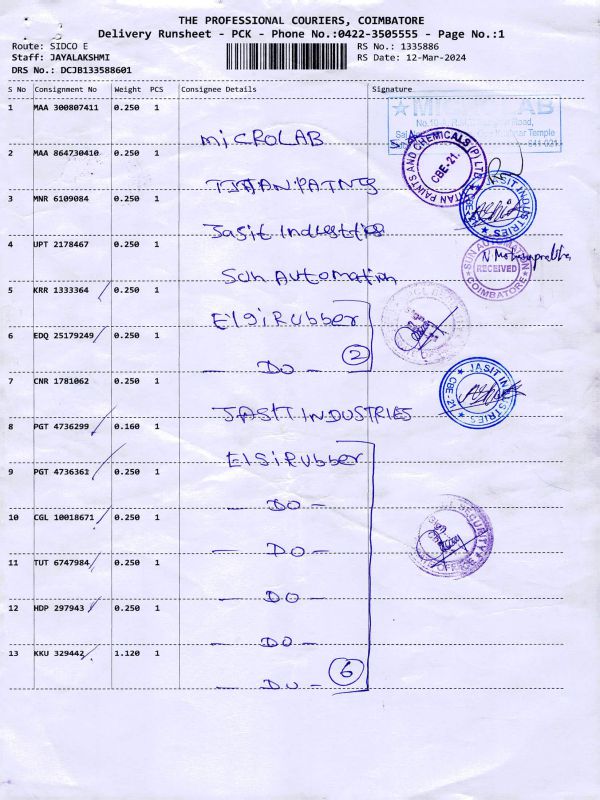 THE PROFESSIONAL COURIERS, COIMBATORE
Delivery Runsheet - PCK - Phone No.:0422-3505555 - Page No.:1
Route: SIDCO E RS No.: 1335886
Staff: JAYALAKSHMI RS Date: 12-Mar-2024
DRS No.: DCJB133588601
S No Consignment No Weight PCS Consignee Details Signature
1 MAA 300807411 0.250 1 MICROLAB
MICRO LAB
2 MAA 864730410 0.250 1 TITAN PAINTS
TITAN PAINTS AND CHEMICALS (P) LTD. CBE-21.
3 MNR 6109084 0.250 1 Jasit Industries
JASIT INDUSTRIES CBE-21
4 UPT 2178467 0.250 1 Sun Automation
SUN AUTOMATION RECEIVED COIMBATORE
5 KRR 1333364 0.250 1 ElgiRubber
6 EDQ 25179249 0.250 1 - DO - 2
7 CNR 1781062 0.250 1 JASIT INDUSTRIES
JASIT INDUSTRIES CBE-21
8 PGT 4736299 0.160 1 ElgiRubber
9 PGT 4736361 0.250 1 - DO -
10 CGL 10018671 0.250 1 - DO -
SECURITY OFFICE
11 TUT 6747984 0.250 1 - DO -
12 HDP 297943 0.250 1 - DO -
13 KKU 329442 1.120 1 - DO - 6